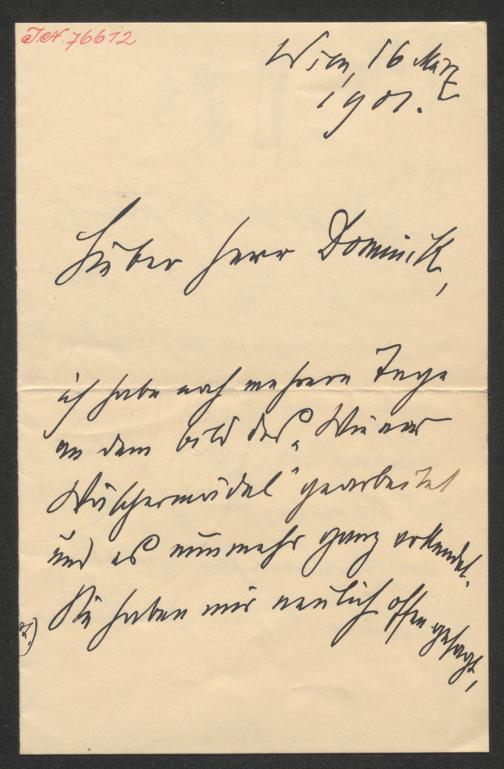 I.N. 76612
Wien, 16 März
1901.
Lieber Herr Dominik,
ich habe noch mehrere Tage
an dem Bild des „Wiener
Wäschermädel" gearbeitet
und es nunmehr ganz vollendet.
Sie haben mir neulich offen gesagt,